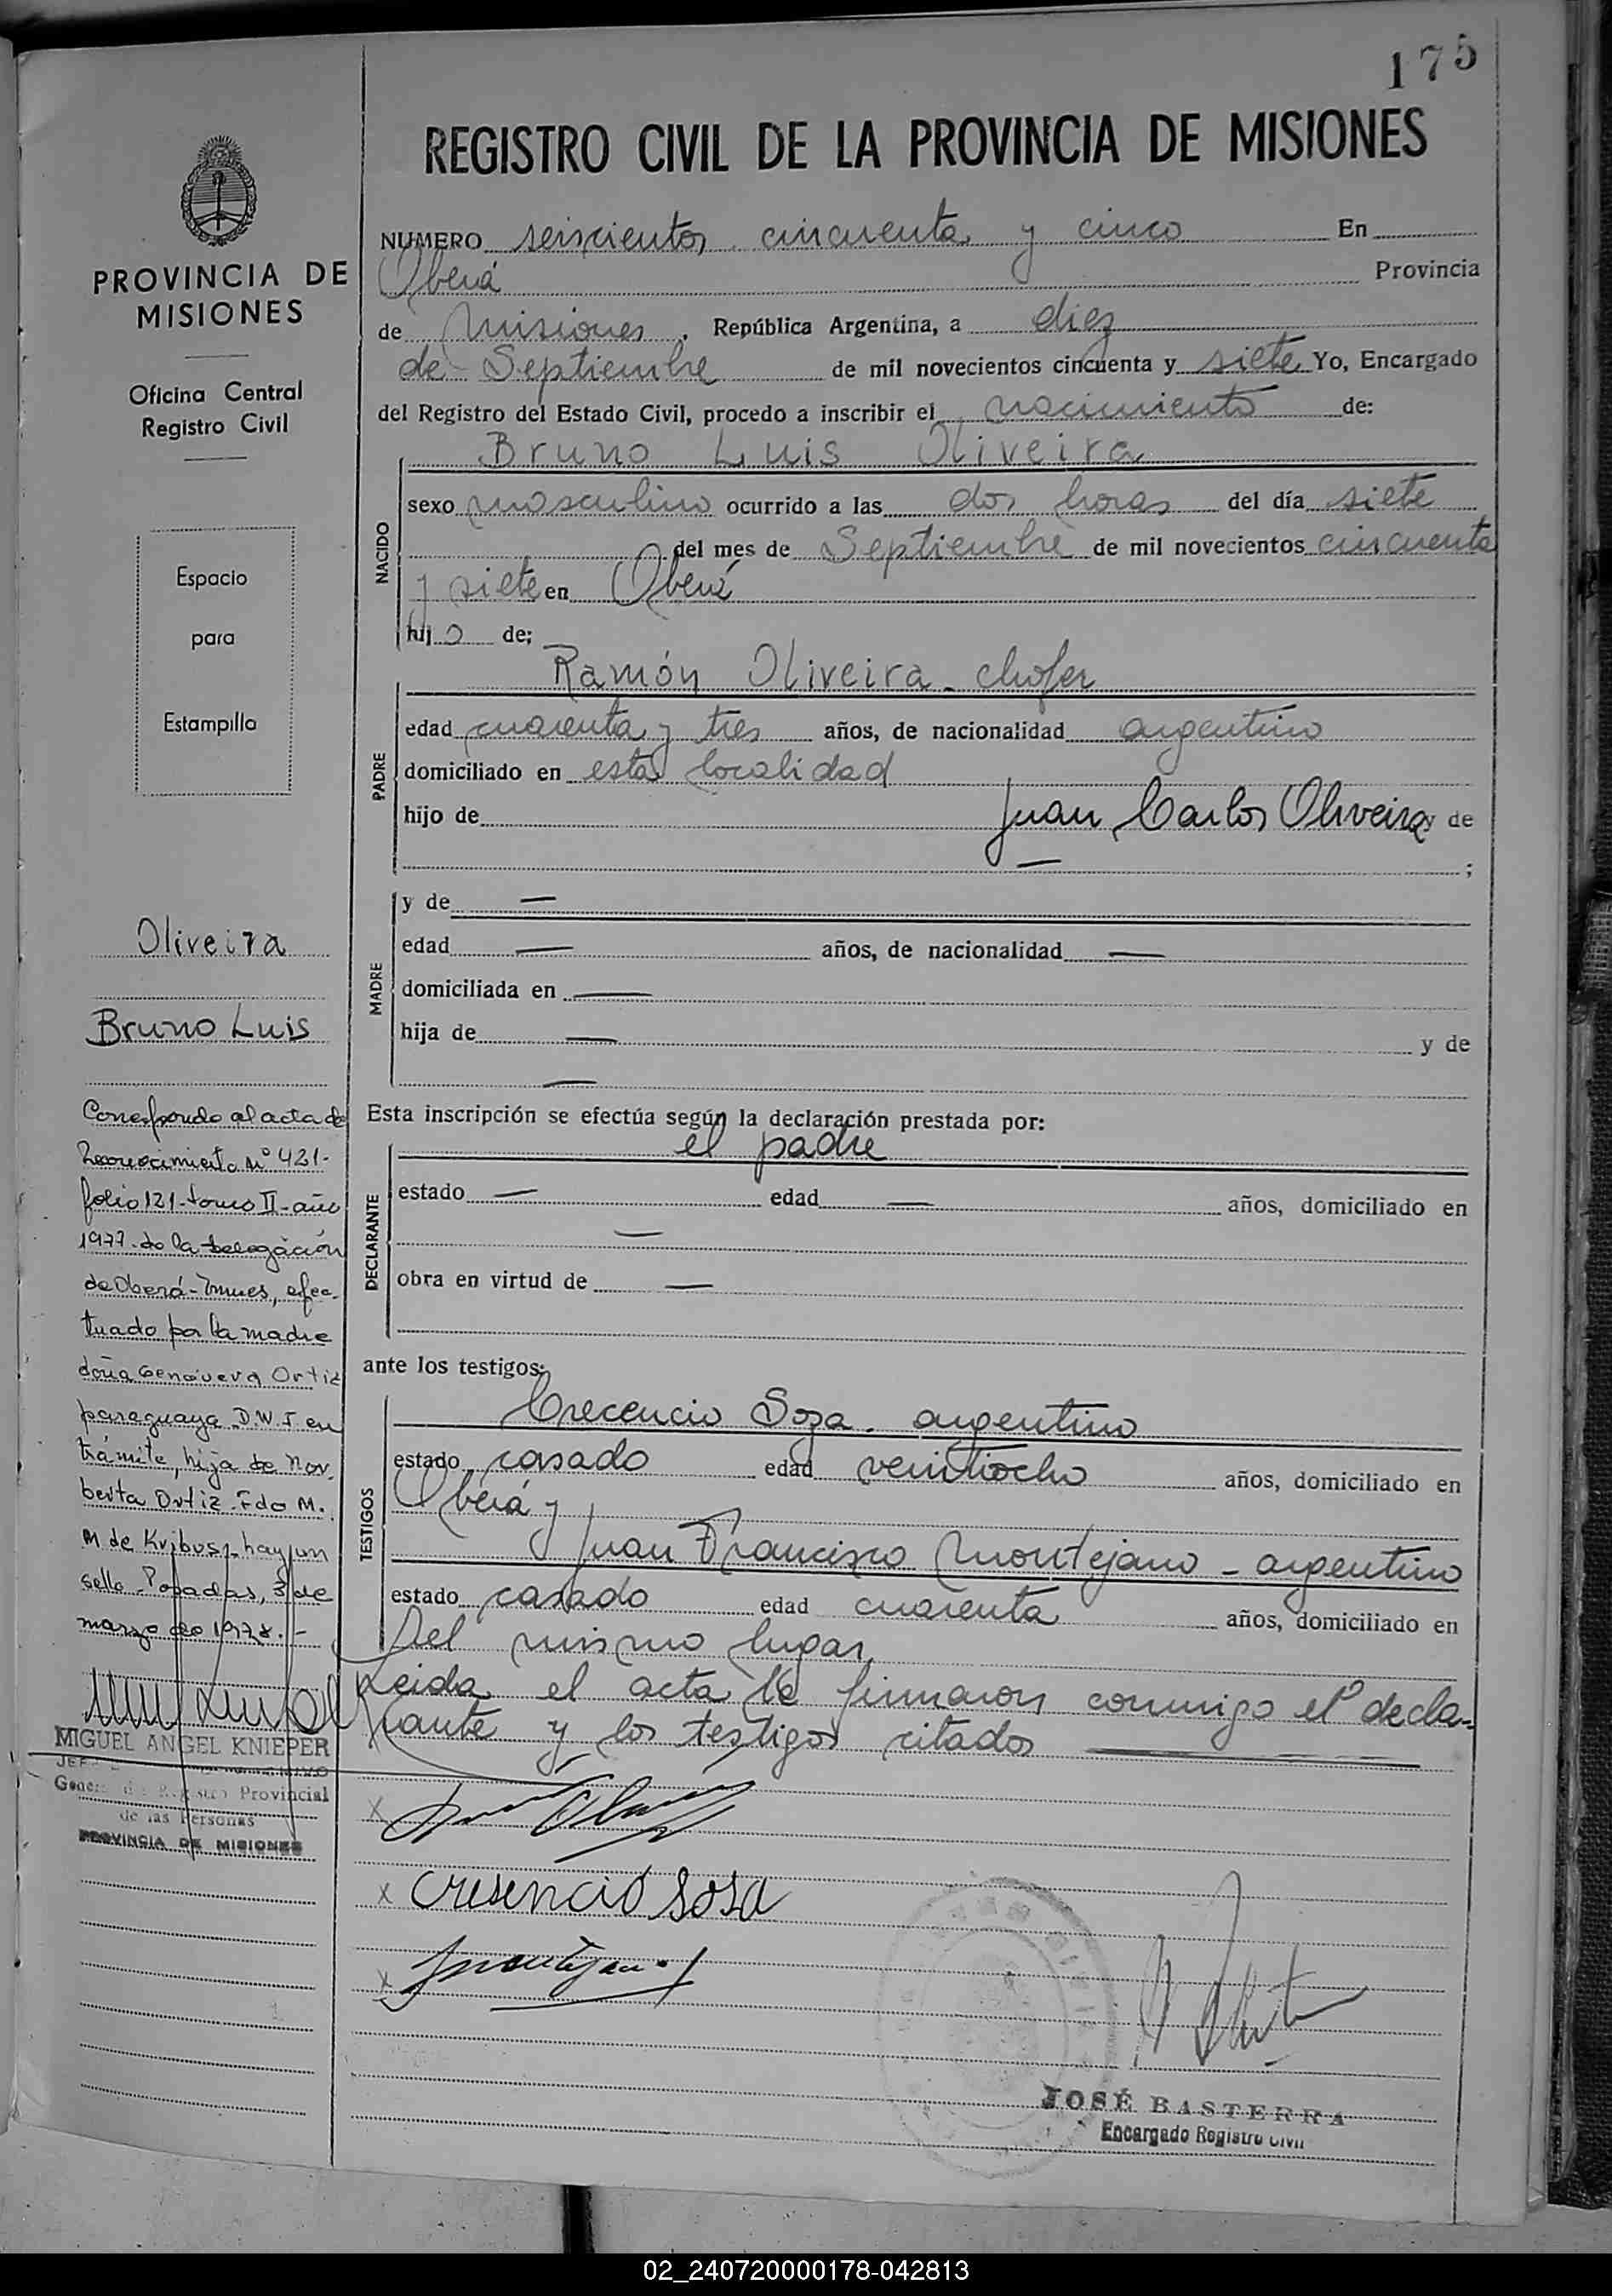 175
REGISTRO CIVIL DE LA PROVINCIA DE MISIONES
PROVINCIA DE
MISIONES
Oficina Central
Registro Civil
Espacio
para
Estampilla
Oliveira
Bruno Luis
Corresponde al acta de
Reconocimiento Nº 421-
folio 121-tomo II-año
1977-de la Delegación
de Oberá-Mnes, efec-
tuado por la madre
doña Genoveva Ortiz
paraguaya D.N.I en
trámite, hija de Nor
berta Ortiz-Fdo M.
M de Kribus-hay un
sello-Posadas, 3 de
marzo de 1978.-
MIGUEL ANGEL KNIEPER
JEFE
General del Registro Provincial
de las Personas
PROVINCIA DE MISIONES
NUMERO seiscientos cincuenta y cinco En
Oberá Provincia
de Misiones, República Argentina, a diez
de Septiembre de mil novecientos cincuenta y siete Yo, Encargado
del Registro del Estado Civil, procedo a inscribir el nacimiento de:
NACIDO
Bruno Luis Oliveira
sexo masculino ocurrido a las dos horas del día siete
del mes de Septiembre de mil novecientos cincuenta
y siete en Oberá
hijo de;
PADRE
Ramón Oliveira - chofer
edad cuarenta y tres años, de nacionalidad argentino
domiciliado en esta localidad
hijo de Juan Carlos Oliveira y de
— ;
MADRE
y de —
edad — años, de nacionalidad —
domiciliada en —
hija de — y de
—
Esta inscripción se efectúa según la declaración prestada por:
DECLARANTE
el padre
estado — edad — años, domiciliado en
—
obra en virtud de —
ante los testigos:
TESTIGOS
Crecencio Soza - argentino
estado casado edad veintiocho años, domiciliado en
Oberá y
Juan Francisco Montejano - argentino
estado casado edad cuarenta años, domiciliado en
Del mismo lugar
Leida el acta la firmaron conmigo el decla-
rante y los testigos citados
x
x cresencio sosa
x
JOSÉ BASTERRA
Encargado Registro Civil
02_240720000178-042813